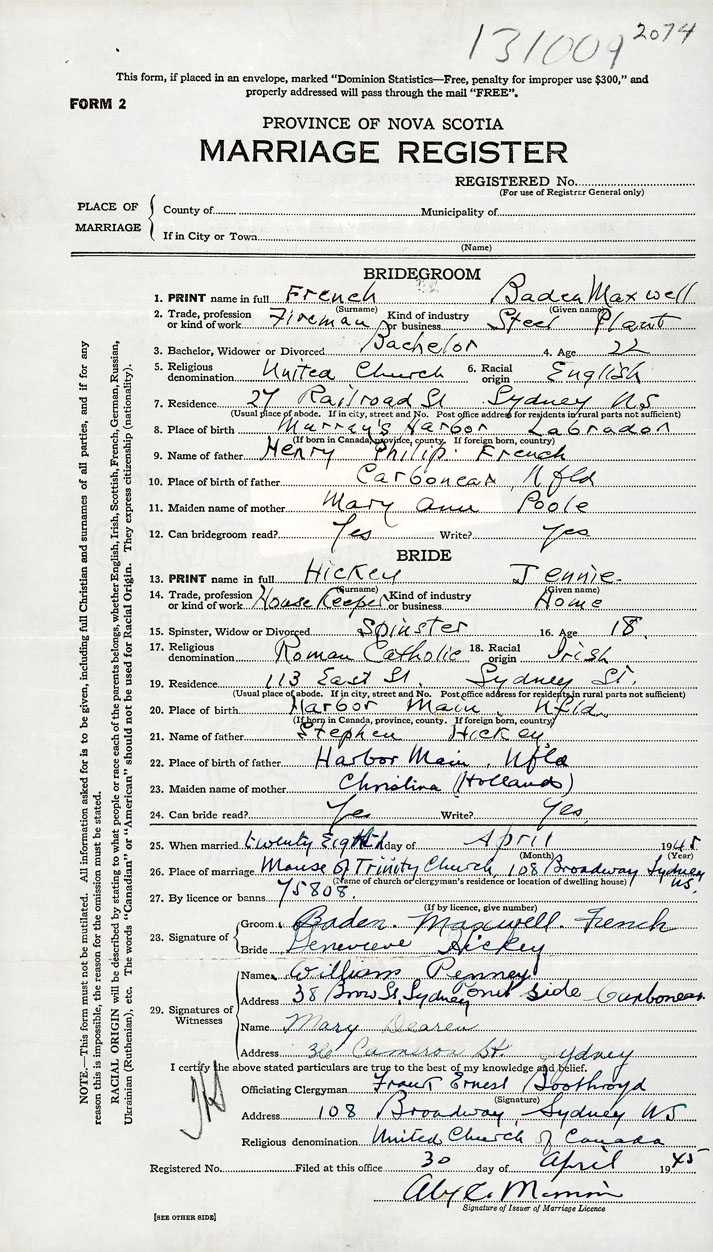 131009 2074
This form, if placed in an envelope, marked "Dominion Statistics—Free, penalty for improper use $300," and
properly addressed will pass through the mail "FREE".
FORM 2
PROVINCE OF NOVA SCOTIA
MARRIAGE REGISTER
REGISTERED No.
(For use of Registrar General only)
PLACE OF MARRIAGE
County of Municipality of
If in City or Town
(Name)
BRIDEGROOM
1. PRINT name in full French Baden Maxwell
(Surname) (Given name)
2. Trade, profession or kind of work Fireman Kind of industry or business Steel Plant
3. Bachelor, Widower or Divorced Bachelor 4. Age 22
5. Religious denomination United Church 6. Racial origin English
7. Residence 27 Railroad St Sydney N.S
(Usual place of abode. If in city, street and No. Post office address for residents in rural parts not sufficient)
8. Place of birth Murray's Harbor Labrador
(If born in Canada, province, county. If foreign born, country)
9. Name of father Henry Philip French
10. Place of birth of father Carbonear, Nfld
11. Maiden name of mother Mary Ann Poole
12. Can bridegroom read? Yes Write? Yes
BRIDE
13. PRINT name in full Hickey Jennie
(Surname) (Given name)
14. Trade, profession or kind of work HouseKeeper Kind of industry or business Home
15. Spinster, Widow or Divorced Spinster 16. Age 18
17. Religious denomination Roman Catholic 18. Racial origin Irish
19. Residence 113 East St. Sydney St.
(Usual place of abode. If in city, street and No. Post office address for residents in rural parts not sufficient)
20. Place of birth Harbor Main, Nfld.
(If born in Canada, province, county. If foreign born, country)
21. Name of father Stephen Hickey
22. Place of birth of father Harbor Main, Nfld
23. Maiden name of mother Christina (Hollands)
24. Can bride read? Yes Write? Yes
25. When married twenty Eighth day of April 1945
(Month) (Year)
26. Place of marriage Manse of Trinity Church, 108 Broadway Sydney N.S.
(Name of church or clergyman's residence or location of dwelling house)
27. By licence or banns 75808
(If by licence, give number)
28. Signature of
Groom Baden Maxwell French
Bride Genevieve Hickey
29. Signatures of Witnesses
Name William Penney
Address 38 Brow St, Sydney side Carbonear
Name Mary
Address 36 Cameron St. Sydney
I certify the above stated particulars are true to the best of my knowledge and belief.
Officiating Clergyman Frank Ernest Boothroyd
(Signature)
Address 108 Broadway, Sydney NS
Religious denomination United Church of Canada
Registered No. Filed at this office 30 day of April 1945
Signature of Issuer of Marriage Licence
[SEE OTHER SIDE]
NOTE.—This form must not be mutilated. All information asked for is to be given, including full Christian and surnames of all parties, and if for any
reason this is impossible, the reason for the omission must be stated.
RACIAL ORIGIN will be described by stating to what people or race each of the parents belongs, whether English, Irish, Scottish, French, German, Russian,
Ukrainian (Ruthenian), etc. The words "Canadian" or "American" should not be used for Racial Origin. They express citizenship (nationality).